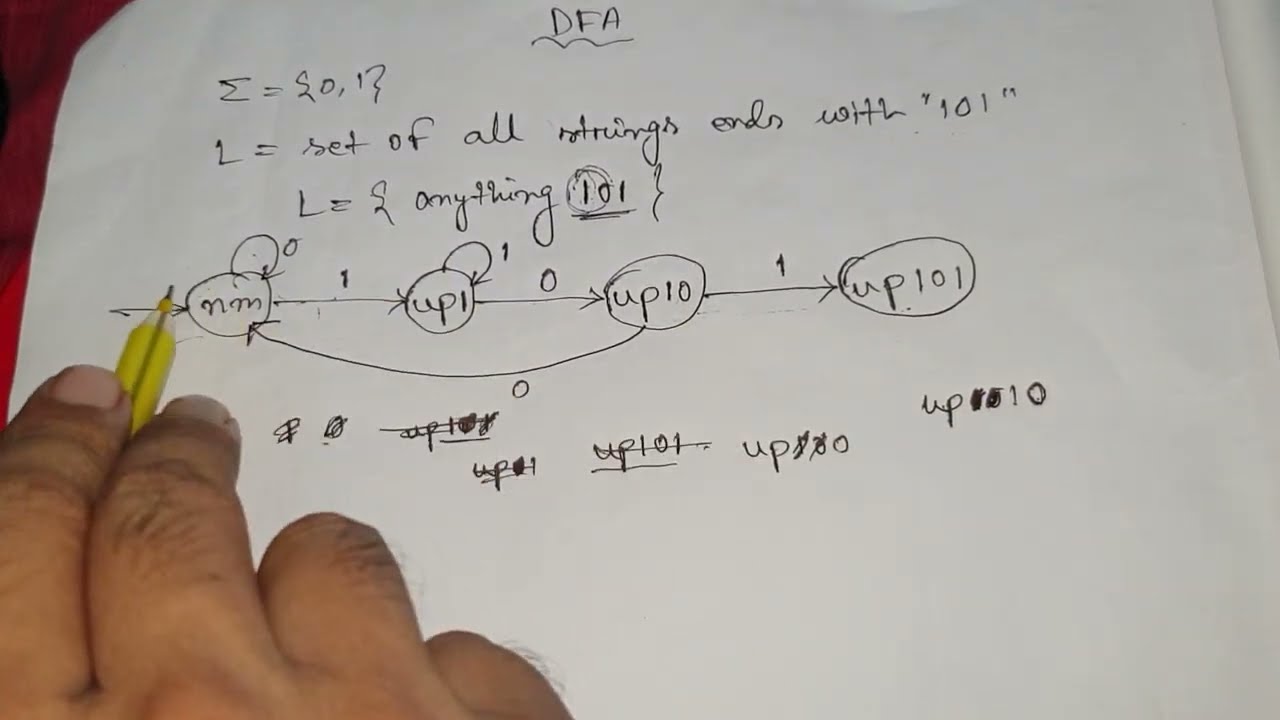 DFA
Σ = {0, 1}
L = set of all strings ends with "101"
L = { anything 101 }
0 1
1 0 1
nm up1 up10 up101
0
up10
up101 up0